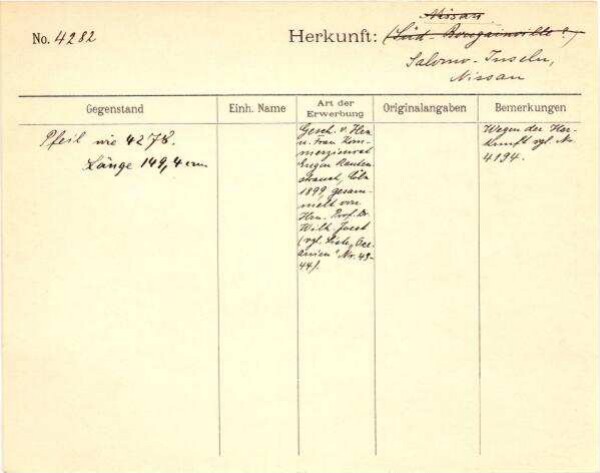 No. 4282
Herkunft: Nissan
(Süd-Bougainville?)
Salomo-Inseln,
Nissan
Gegenstand
Einh. Name
Art der Erwerbung
Originalangaben
Bemerkungen
Pfeil wie 4278.
Länge 149,4 cm
Gesch. v. Hrn
u. Frau Kom-
merzienrat
Eugen Rauten-
strauch, Cöln
1899, gesam-
melt von
Hrn. Prof. Dr.
Wilh. Joest
(vgl. Liste „Oce-
anien" Nr. 43-
44).
Wegen der Her-
kunft vgl. Nr.
4194.